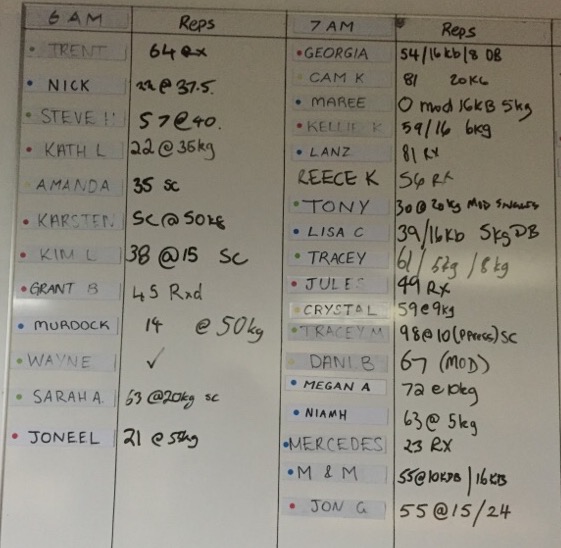 6 AM Reps
TRENT 64 Rx
NICK 22 @ 37.5.
STEVE 57@40.
KATH L 22 @ 35kg
AMANDA 35 SC
KARSTEN SC @ 50kg
KIM L 38 @15 SC
GRANT B 45 Rxd
MURDOCK 14 @ 50kg
WAYNE ✓
SARAH A 53 @20kg SC
JONEEL 21 @ 50kg
7 AM Reps
GEORGIA 54/16kb/8 DB
CAM K 81 20KG
MAREE 0 mod 16KB 5kg
KELLIE K 59/16 6kg
LANZ 81 RX
REECE K 56 RX
TONY 30@20kg MOD SINGLES
LISA C 39/16Kb 5kg DB
TRACEY 61/ 5kg /8kg
JULES 49 RX
CRYSTAL 59@9kg
TRACEY M 98@10(PPRESS)SC
DANI B 67 (MOD)
MEGAN A 72 @10kg
NIAMH 63@ 5kg
MERCEDES 23 RX
M & M 55@10KDB/16KB
JON G 55@15/24